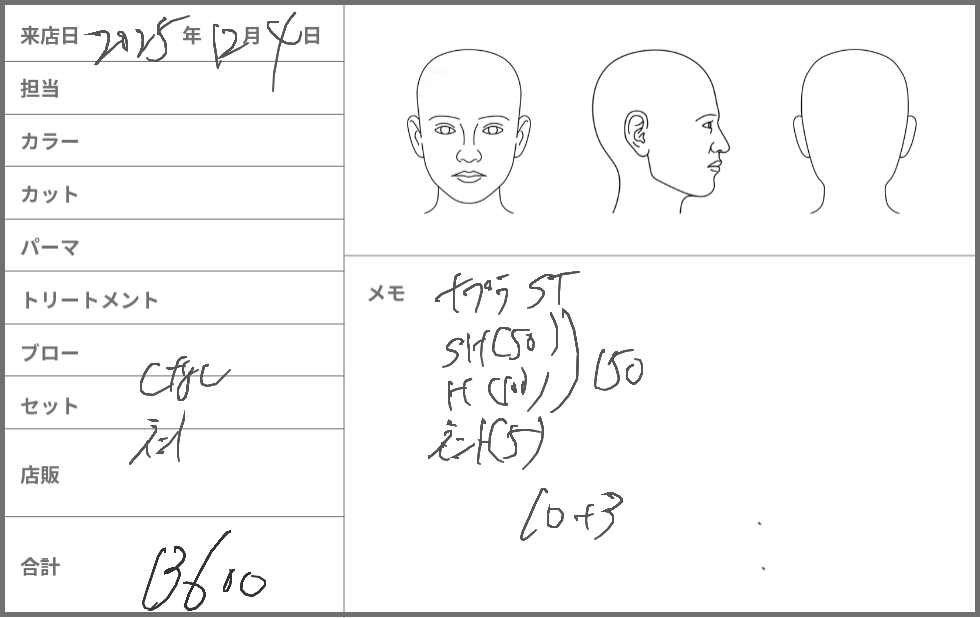 来店日 2025 年 12 月 4 日
担当
カラー
カット
パーマ
トリートメント
ブロー
セット
店販
合計 13600
メモ
ST
SH(50)
H (50)
150
(5)
10+3